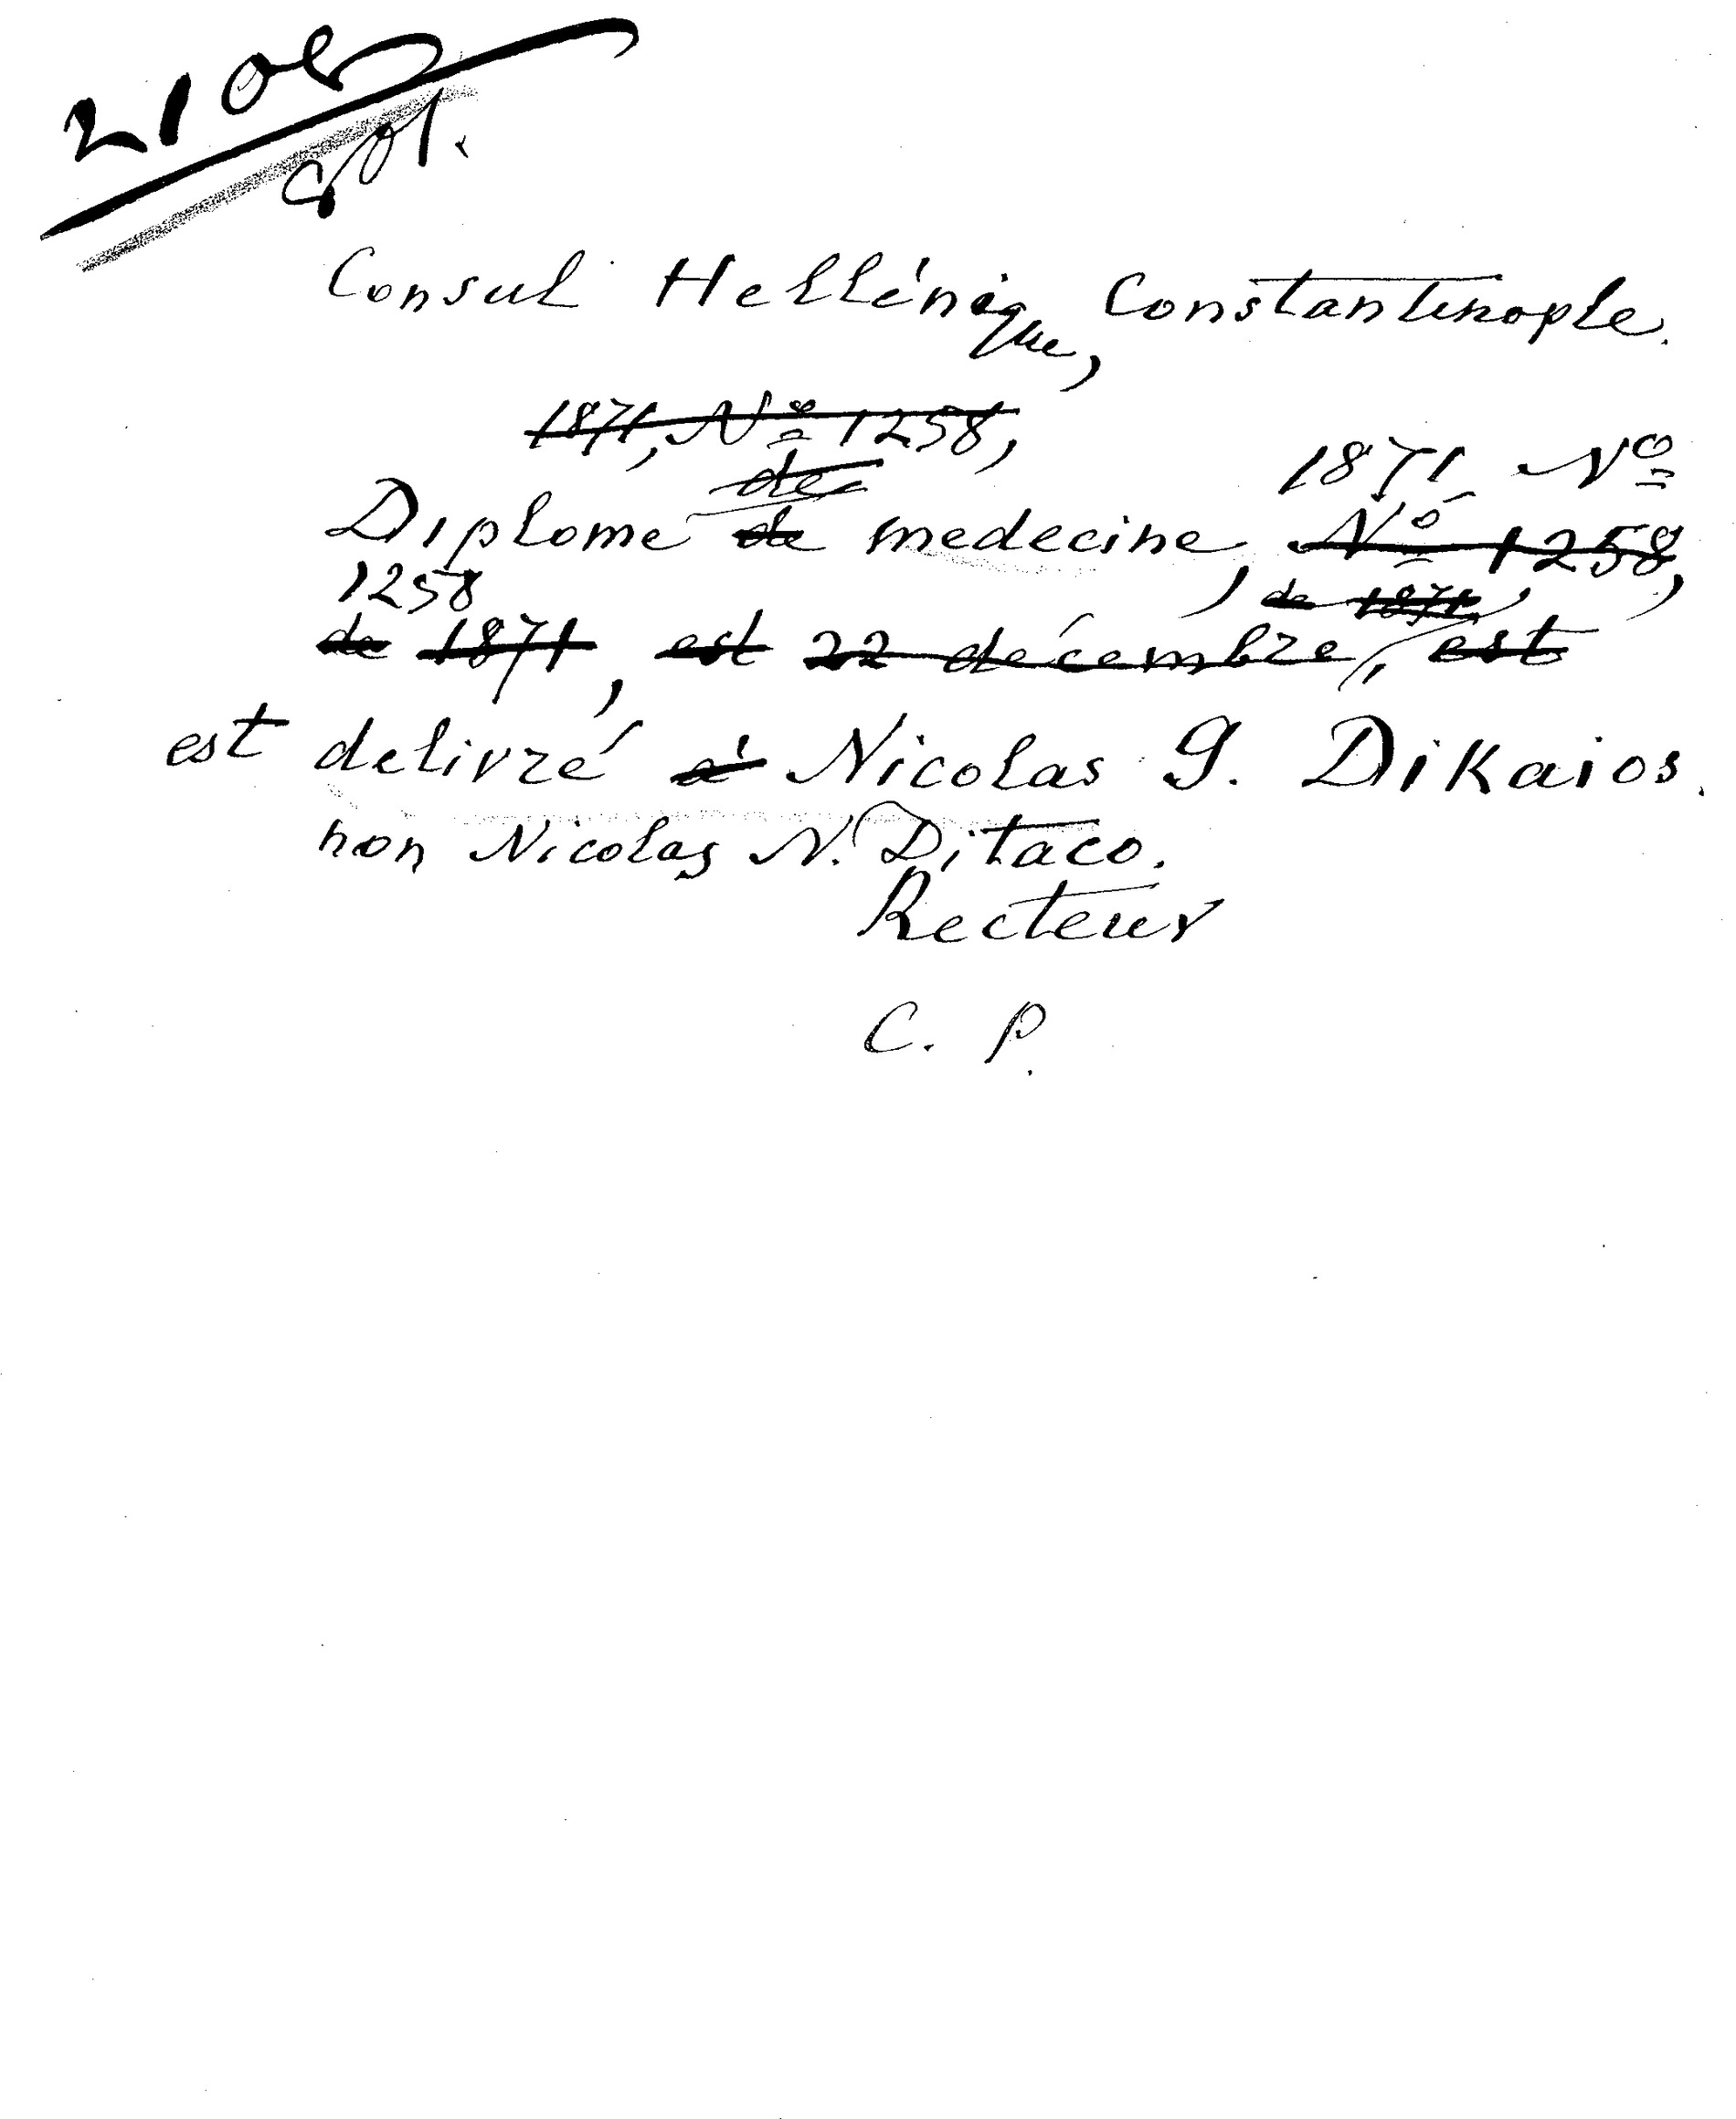 Consul Hellénique, Constantinople.
1871, Nº 1258,
de 1871 Nº
Diplome de medecine, Nº 1258,
1258 de 1871,
de 1871, est 22 décembre, est
est delivré à Nicolas G. Dikaios.
non Nicolas N. Ditaco.
Recteur
C. P.